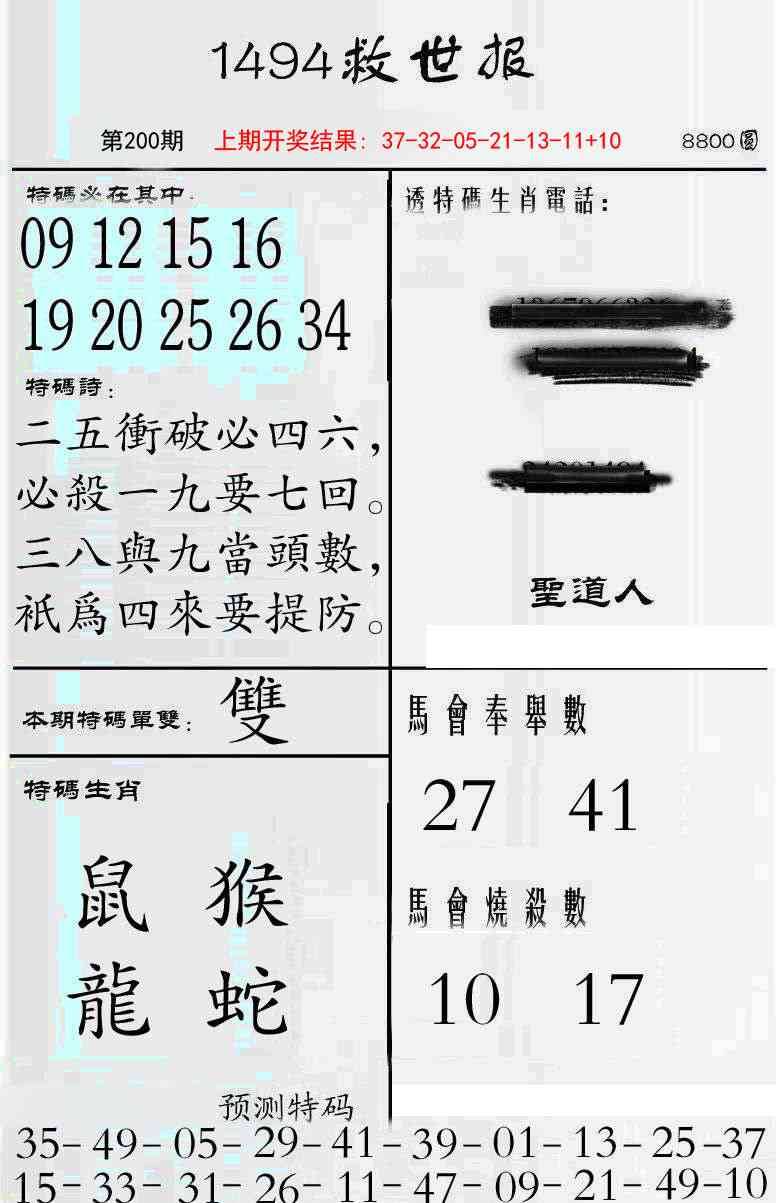 1494救世报
第200期 上期开奖结果：37-32-05-21-13-11+10 8800圓
特碼必在其中：
09 12 15 16
19 20 25 26 34
特碼詩：
二五衝破必四六，
必殺一九要七回。
三八與九當頭數，
衹爲四來要提防。
透特碼生肖電話：
聖道人
本期特碼單雙：雙
特碼生肖
鼠 猴
龍 蛇
馬會奉舉數
27 41
馬會燒殺數
10 17
预测特码
35-49-05-29-41-39-01-13-25-37
15-33-31-26-11-47-09-21-49-10